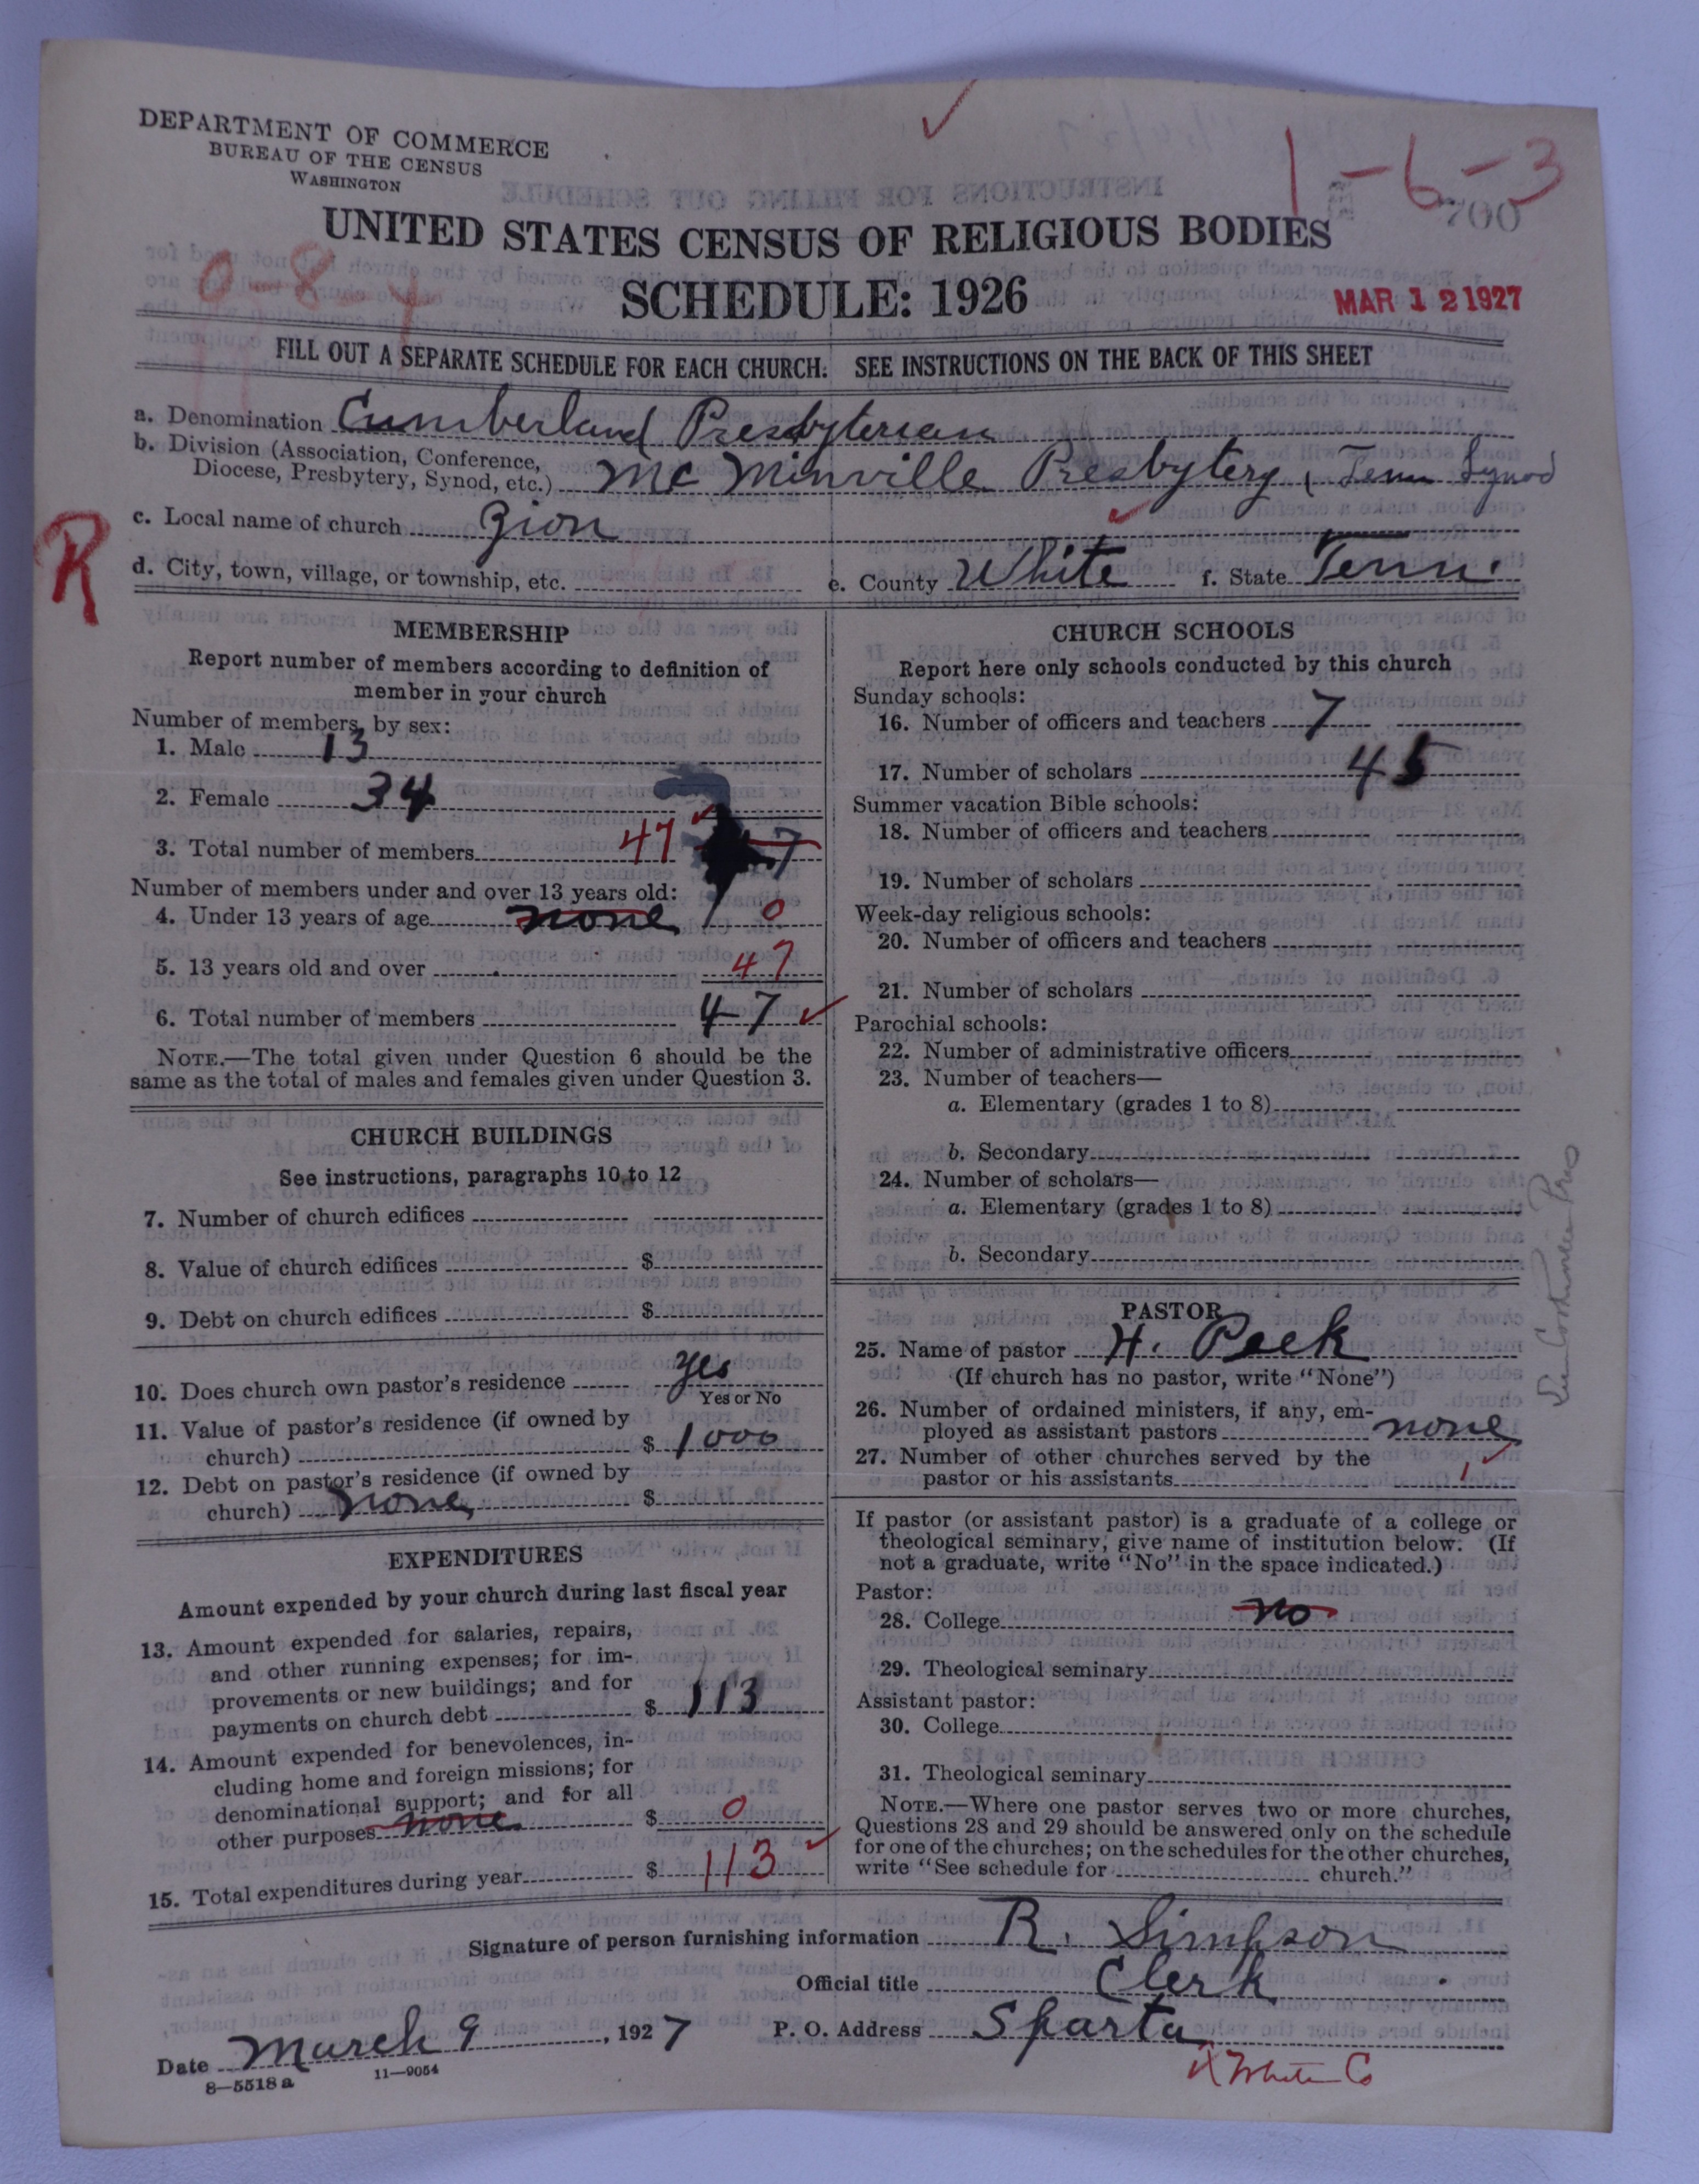 DEPARTMENT OF COMMERCE
BUREAU OF THE CENSUS
WASHINGTON
1-6-3
700
UNITED STATES CENSUS OF RELIGIOUS BODIES
0-8-4
SCHEDULE: 1926
MAR 12 1927
FILL OUT A SEPARATE SCHEDULE FOR EACH CHURCH. SEE INSTRUCTIONS ON THE BACK OF THIS SHEET
a. Denomination Cumberland Presbyterian
b. Division (Association, Conference,
Diocese, Presbytery, Synod, etc.) McMinville Presbytery, Tenn Synod
R
c. Local name of church Zion
d. City, town, village, or township, etc. e. County White f. State Tenn.
MEMBERSHIP
Report number of members according to definition of
member in your church
Number of members, by sex:
1. Male 13
2. Female 34
3. Total number of members 47 7
Number of members under and over 13 years old:
4. Under 13 years of age none 0
5. 13 years old and over 47
6. Total number of members 47
NOTE.—The total given under Question 6 should be the
same as the total of males and females given under Question 3.
CHURCH BUILDINGS
See instructions, paragraphs 10 to 12
7. Number of church edifices
8. Value of church edifices $
9. Debt on church edifices $
10. Does church own pastor's residence yes
Yes or No
11. Value of pastor's residence (if owned by
church) $ 1000
12. Debt on pastor's residence (if owned by
church) none $
EXPENDITURES
Amount expended by your church during last fiscal year
13. Amount expended for salaries, repairs,
and other running expenses; for im-
provements or new buildings; and for
payments on church debt $ 113
14. Amount expended for benevolences, in-
cluding home and foreign missions; for
denominational support; and for all
other purposes none $ 0
15. Total expenditures during year $ 113
CHURCH SCHOOLS
Report here only schools conducted by this church
Sunday schools:
16. Number of officers and teachers 7
17. Number of scholars 45
Summer vacation Bible schools:
18. Number of officers and teachers
19. Number of scholars
Week-day religious schools:
20. Number of officers and teachers
21. Number of scholars
Parochial schools:
22. Number of administrative officers
23. Number of teachers—
a. Elementary (grades 1 to 8)
b. Secondary
24. Number of scholars—
a. Elementary (grades 1 to 8)
b. Secondary
PASTOR
25. Name of pastor H. Peek
(If church has no pastor, write "None")
26. Number of ordained ministers, if any, em-
ployed as assistant pastors none
27. Number of other churches served by the
pastor or his assistants 1
If pastor (or assistant pastor) is a graduate of a college or
theological seminary, give name of institution below. (If
not a graduate, write "No" in the space indicated.)
Pastor:
28. College no
29. Theological seminary
Assistant pastor:
30. College
31. Theological seminary
NOTE.—Where one pastor serves two or more churches,
Questions 28 and 29 should be answered only on the schedule
for one of the churches; on the schedules for the other churches,
write "See schedule for church."
Signature of person furnishing information R. Simpson
Official title Clerk
Date March 9, 1927 P. O. Address Sparta
White Co
8—5518 a 11—9054